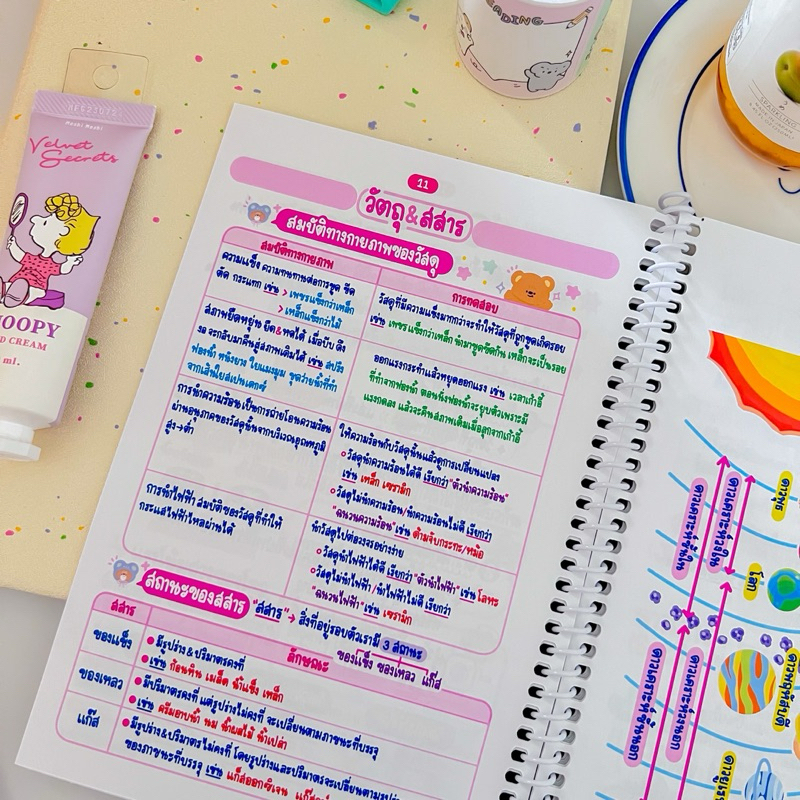 READING
SPARKLING
HPE23072
Mochi Mochi
Velvet
Secrets
ml.
11
วัตถุ&สสาร
สมบัติทางกายภาพของวัสดุ
สมบัติทางกายภาพ
การทดสอบ
ความแข็ง ความทนทานต่อการขูด ขีด
ตัด กระแทก เช่น > เพชรแข็งกว่าเหล็ก
> เหล็กแข็งกว่าไม้
วัสดุที่มีความแข็งมากกว่าจะทำให้วัสดุที่ถูกขูดเกิดรอย
เช่น เพชรแข็งกว่าเหล็ก นำมาขูดขีดกัน เหล็กจะเป็นรอย
สภาพยืดหยุ่น ยืด&หดได้ เมื่อบีบ ดึง
งอ จะกลับมาคืนสู่สภาพเดิมได้ เช่น สปริง
ฟองน้ำ หนังยาง ใยแมงมุม ชุดว่ายน้ำที่ทำ
จากเส้นใยสแปนเดกซ์
ออกแรงกระทำแล้วหยุดออกแรง เช่น เวลาเก้าอี้
ที่ทำจากฟองน้ำ ตอนนั่งฟองน้ำจะยุบตัวเพราะมี
แรงกดลง แล้วจะคืนสภาพเดิมเมื่อลุกจากเก้าอี้
การนำความร้อน เป็นการถ่ายโอนความร้อน
ผ่านอนุภาคของวัสดุนั้นจากบริเวณอุณหภูมิ
สูง→ต่ำ
ให้ความร้อนกับวัสดุนั้นแล้วดูการเปลี่ยนแปลง
วัสดุนำความร้อนได้ดี เรียกว่า "ตัวนำความร้อน"
เช่น เหล็ก เซรามิก
วัสดุไม่นำความร้อน/นำความร้อนไม่ดี เรียกว่า
"ฉนวนความร้อน" เช่น ด้ามจับกระทะ/หม้อ
การนำไฟฟ้า สมบัติของวัสดุที่ทำให้
กระแสไฟฟ้าไหลผ่านได้
นำวัสดุไปต่อวงจรอย่างง่าย
วัสดุนำไฟฟ้าได้ดี เรียกว่า "ตัวนำไฟฟ้า" เช่น โลหะ
วัสดุไม่นำไฟฟ้า/นำไฟฟ้าไม่ดี เรียกว่า
"ฉนวนไฟฟ้า" เช่น เซรามิก
สถานะของสสาร "สสาร" → สิ่งที่อยู่รอบตัวเรามี 3 สถานะ
ของแข็ง ของเหลว แก๊ส
สสาร
ลักษณะ
ของแข็ง
มีรูปร่าง&ปริมาตรคงที่
เช่น ก้อนหิน เมล็ด น้ำแข็ง เหล็ก
ของเหลว
มีปริมาตรคงที่ แต่รูปร่างไม่คงที่ จะเปลี่ยนตามภาชนะที่บรรจุ
เช่น ครีมอาบน้ำ นม น้ำผลไม้ น้ำเปล่า
แก๊ส
มีรูปร่าง&ปริมาตรไม่คงที่ โดยรูปร่างและปริมาตรจะเปลี่ยนตามรูปร่าง
ของภาชนะที่บรรจุ เช่น แก๊สออกซิเจน
ดาวพุธ
ดาวเคราะห์ชั้นใน
ดาวเคราะห์วงใน
โลก
ดาวพฤหัสบดี
ดาวเคราะห์ชั้นนอก
ดาวเคราะห์วงนอก